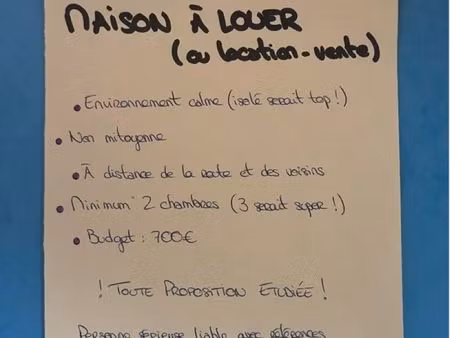 MAISON À LOUER
(ou location-vente)
• Environnement calme (isolé serait top !)
• Non mitoyenne
• À distance de la route et des voisins
• Minimum 2 chambres (3 serait super !)
• Budget : 700€
! TOUTE PROPOSITION ETUDIÉE !
Personne sérieuse, fiable avec références